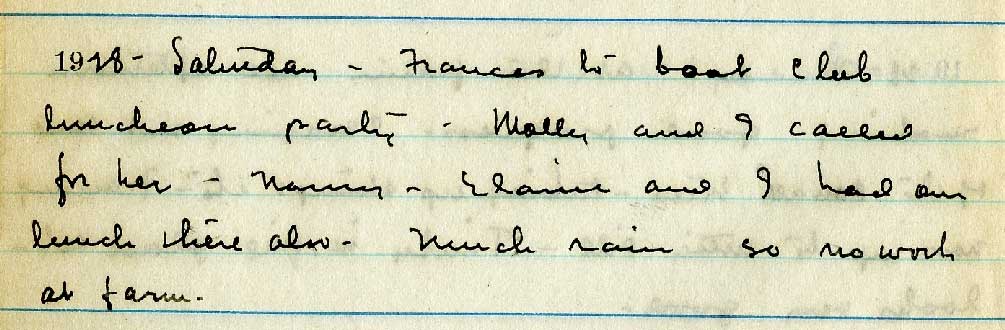 1948 - Saturday - Frances to boat club
luncheon party - Molly and I called
for her - Nancy - Elaine and I had our
lunch there also - Much rain so no work
at farm.